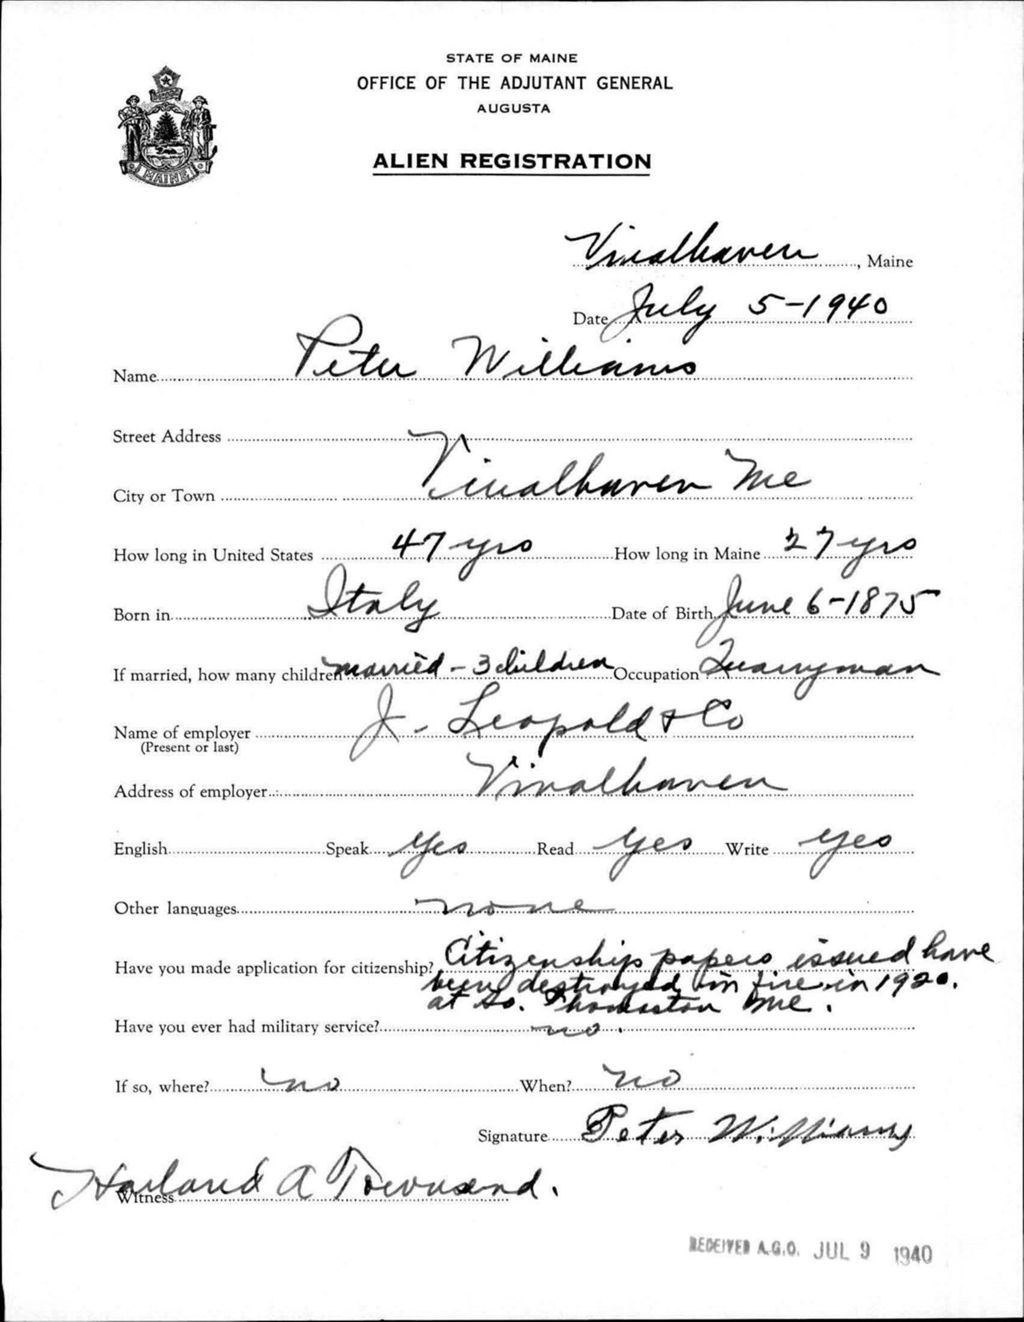 STATE OF MAINE
OFFICE OF THE ADJUTANT GENERAL
AUGUSTA
ALIEN REGISTRATION
MAINE
Vinalhaven, Maine
Date July 5-1940
Name Peter Williams
Street Address
City or Town Vinalhaven Me
How long in United States 47 yrs How long in Maine 27 yrs
Born in Italy Date of Birth June 6-1875
If married, how many children married - 3 children Occupation Quarryman
Name of employer J. Leopold & Co
(Present or last)
Address of employer Vinalhaven
English Speak Yes Read Yes Write Yes
Other languages none
Have you made application for citizenship? Citizenship papers issued have
been destroyed in fire in 1920.
at So. Thomaston Me.
Have you ever had military service? no.
If so, where? no When? no
Signature Peter Williams
Harland A Townsend.
Witness
RECEIVED A.G.O. JUL 9 1940